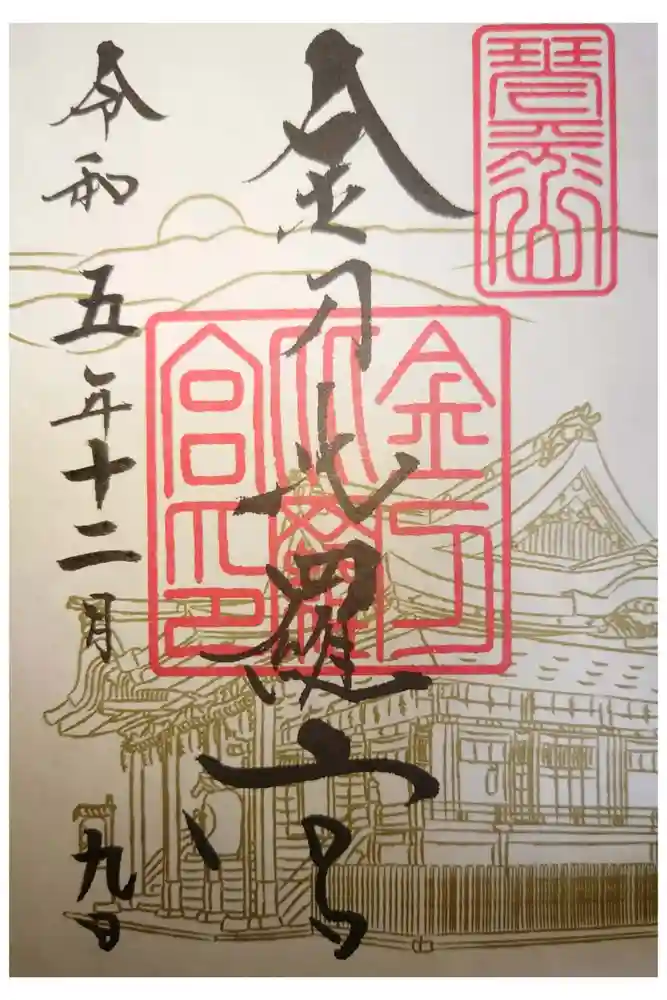 琴平山
金刀比羅宮
金刀
比羅
宮印
令和五年十二月九日